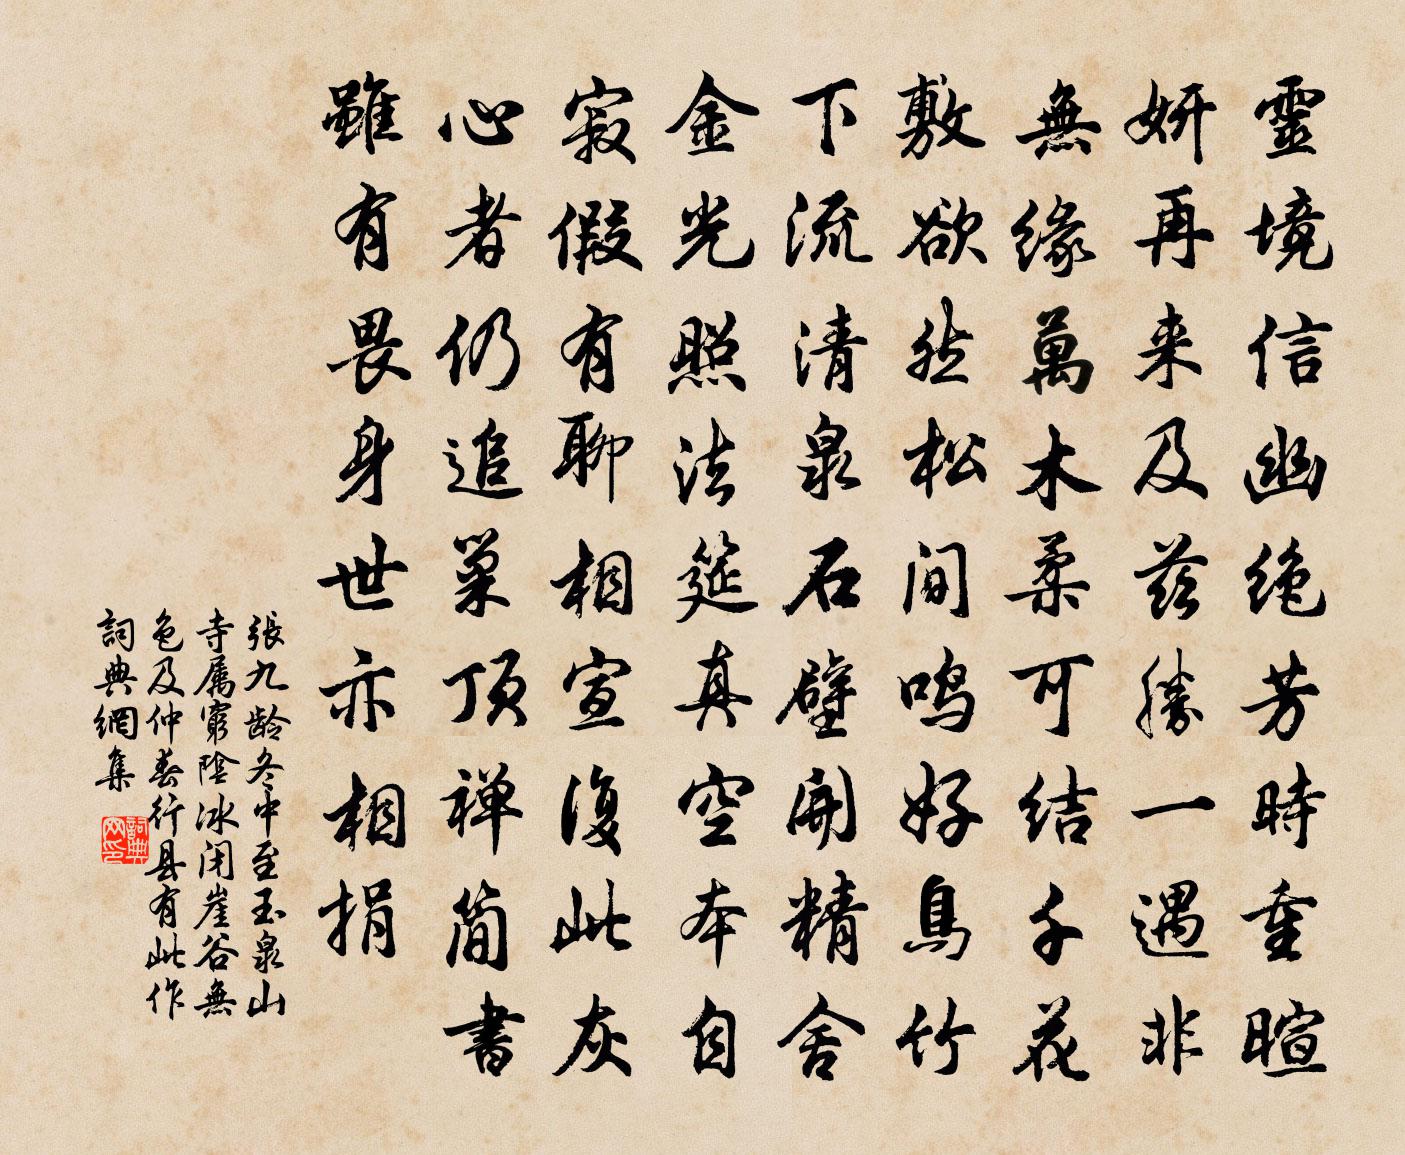 靈境信幽絶芳時重暄
妍再来及茲勝一遇非
無緣萬木柔可结千花
敷欲然松间鸣好鳥竹
下流清泉石壁開精舍
金光照法筵真空本自
寂假有聊相宣復此灰
心者仍追巢顶禅简書
雖有畏身世亦相捐
張九龄冬中至玉泉山
寺属窮陰冰闭崖谷無
色及仲春行县有此作
詞典網集
詞典
网印